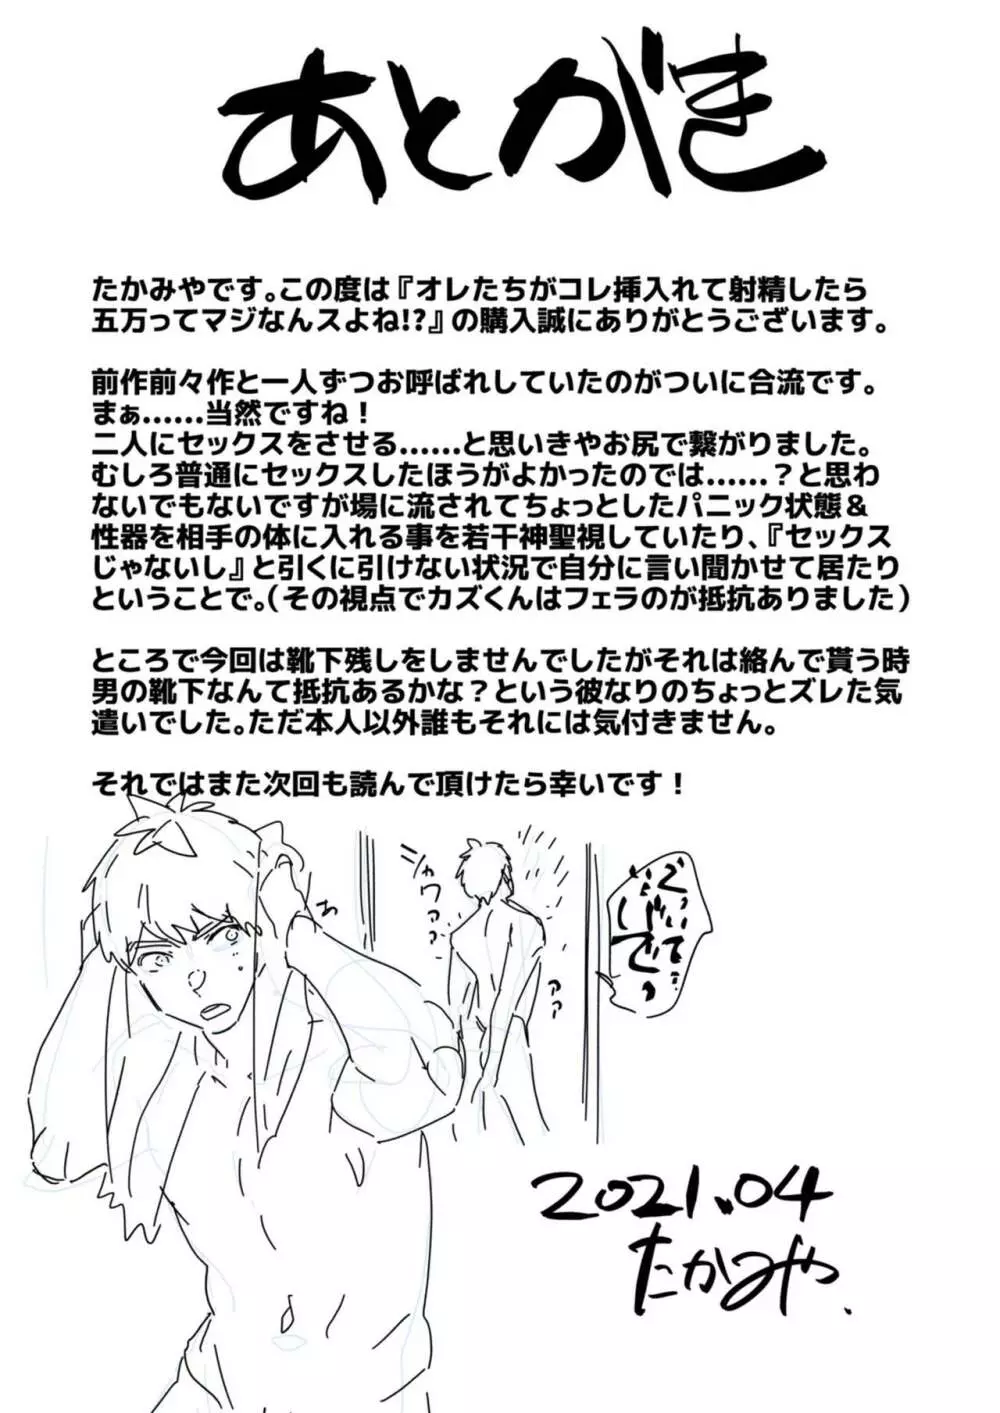 あとがき
たかみやです。この度は『オレたちがコレ挿入れて射精したら
五万ってマジなんスよね!?』の購入誠にありがとうございます。
前作前々作と一人ずつお呼ばれしていたのがついに合流です。
まぁ……当然ですね！
二人にセックスをさせる……と思いきやお尻で繋がりました。
むしろ普通にセックスしたほうがよかったのでは……？と思わ
ないでもないですが場に流されてちょっとしたパニック状態＆
性器を相手の体に入れる事を若干神聖視していたり、『セックス
じゃないし』と引くに引けない状況で自分に言い聞かせて居たり
ということで。（その視点でカズくんはフェラのが抵抗ありました）
ところで今回は靴下残しをしませんでしたがそれは絡んで貰う時
男の靴下なんて抵抗あるかな？という彼なりのちょっとズレた気
遣いでした。ただ本人以外誰もそれには気付きません。
それではまた次回も読んで頂けたら幸いです！
アァ
2021.04
たかみや.